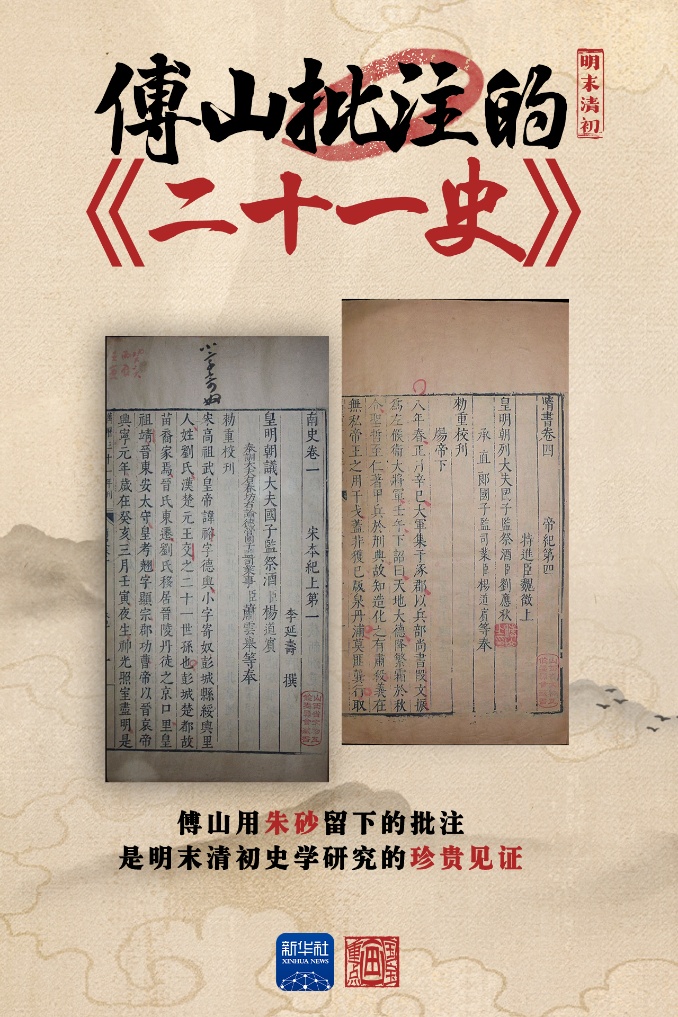 傅山批注的
明末清初
《二十一史》
南史卷一 宋本紀上第一
李延壽 撰
皇明朝議大夫國子監祭酒臣楊道賓
勑重校刊
宋高祖武皇帝諱裕字德輿小字寄奴彭城縣綏輿里
人姓劉氏漢楚元王交之二十一世孫也彭城楚都故
苗裔家焉晉氏東遷劉氏移居晉陵丹徒之京口里皇
祖靖晉東安太守皇考翹字顯宗郡功曹帝以晉哀帝
興寧元年歲在癸亥三月壬寅夜生神光照室盡明是
小字寄奴
隋書卷四 帝紀第四
特進臣魏徵上
皇明朝列大夫國子監祭酒臣劉應秋
承直郎國子監司業臣楊道賓等奉
勑重校刊
煬帝下
八年春正月辛巳大軍集于涿郡以兵部尚書段文振
爲左候衛大將軍壬午下詔曰天地大德降繁霜於秋
令聖哲至仁著甲兵於刑典故知造化之有肅殺義在
無私帝王之用干戈蓋非獲已版泉丹浦莫匪龔行取
傅山用朱砂留下的批注
是明末清初史学研究的珍贵见证
新华社
XINHUA NEWS